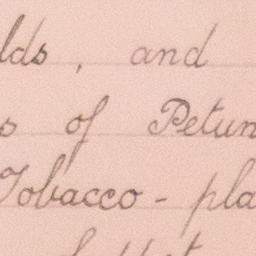 lds, and
s of Petun
Tobacco - pla